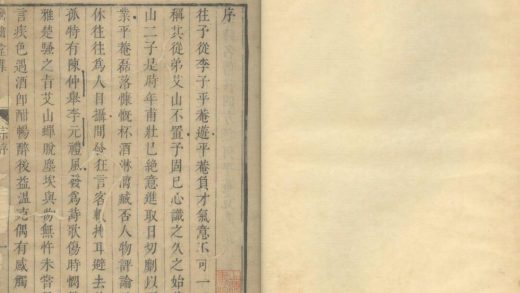 序
往予從李子平菴遊平菴負才氣意不可一
稱其從弟艾山不置予固已心識之久之始
山二子是時年甫壯已絶意進取日切劘以
業平菴磊落慷慨杯酒淋漓臧否人物評論
休往往為人目攝間發狂言客輒掩耳避去
孤特有陳仲舉李元禮風發為詩歌傷時憫
雅楚騷之音艾山蟬脫塵埃與物無忤未嘗
言疾色遇酒卽酣暢醉後益溫克偶有感觸